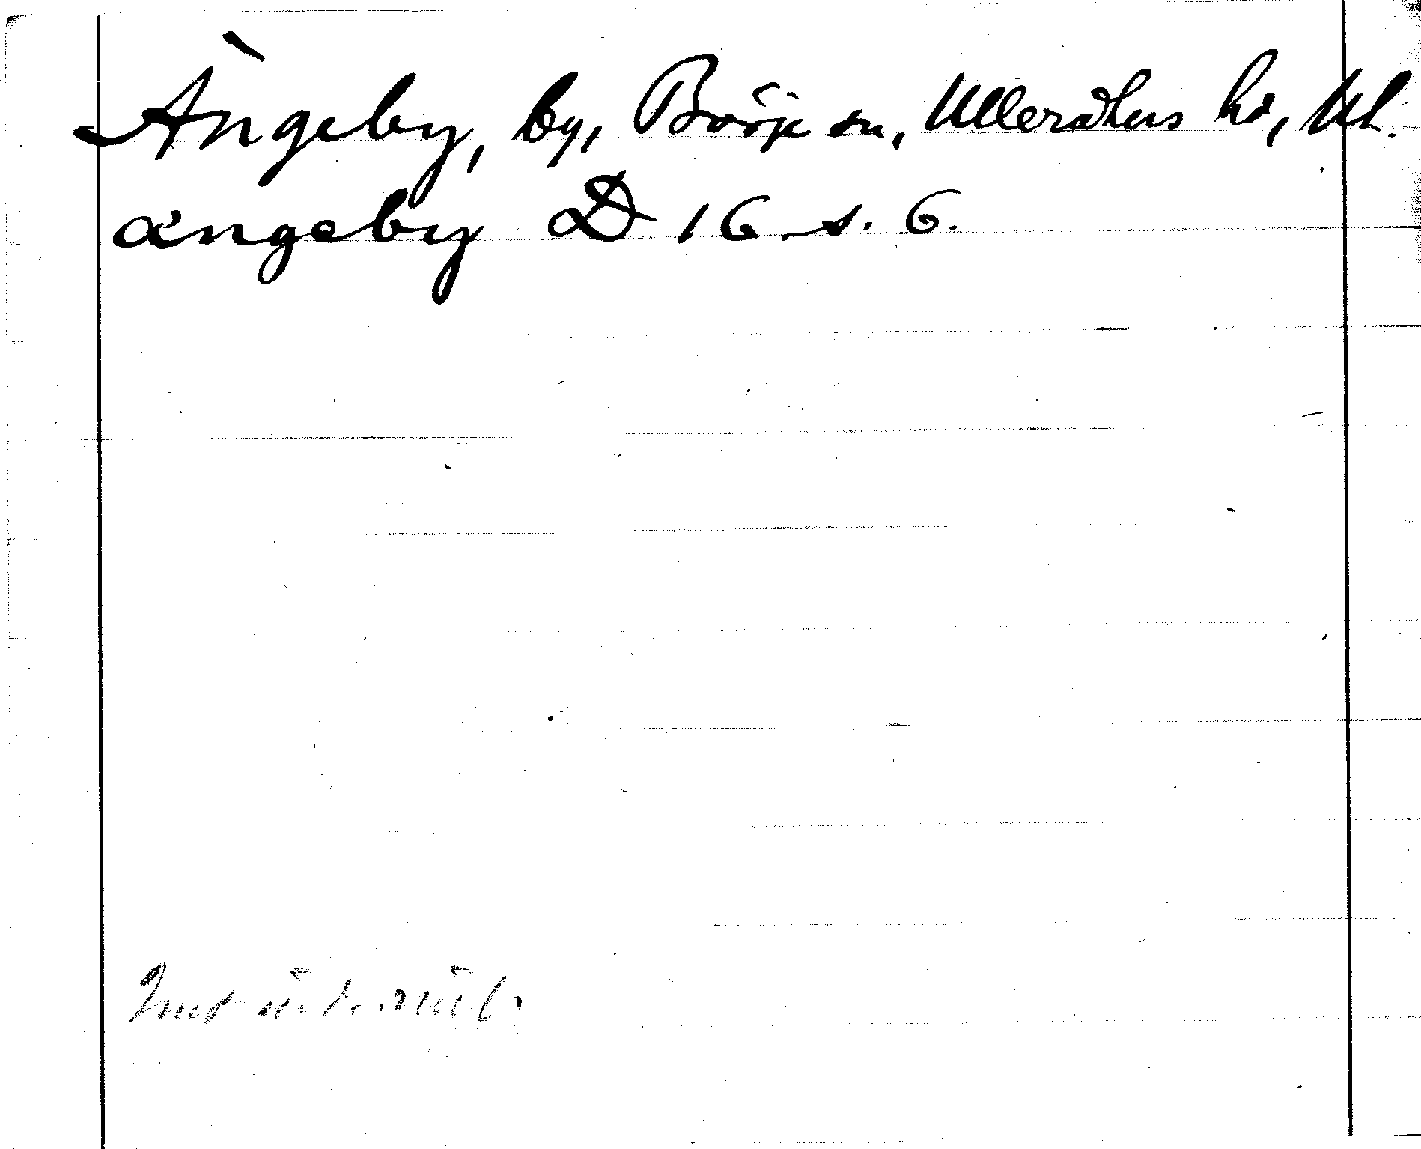 Ängeby, by, Börje sn, Ulleråkers hd, Upl.
ängeby D 16 s. 6.